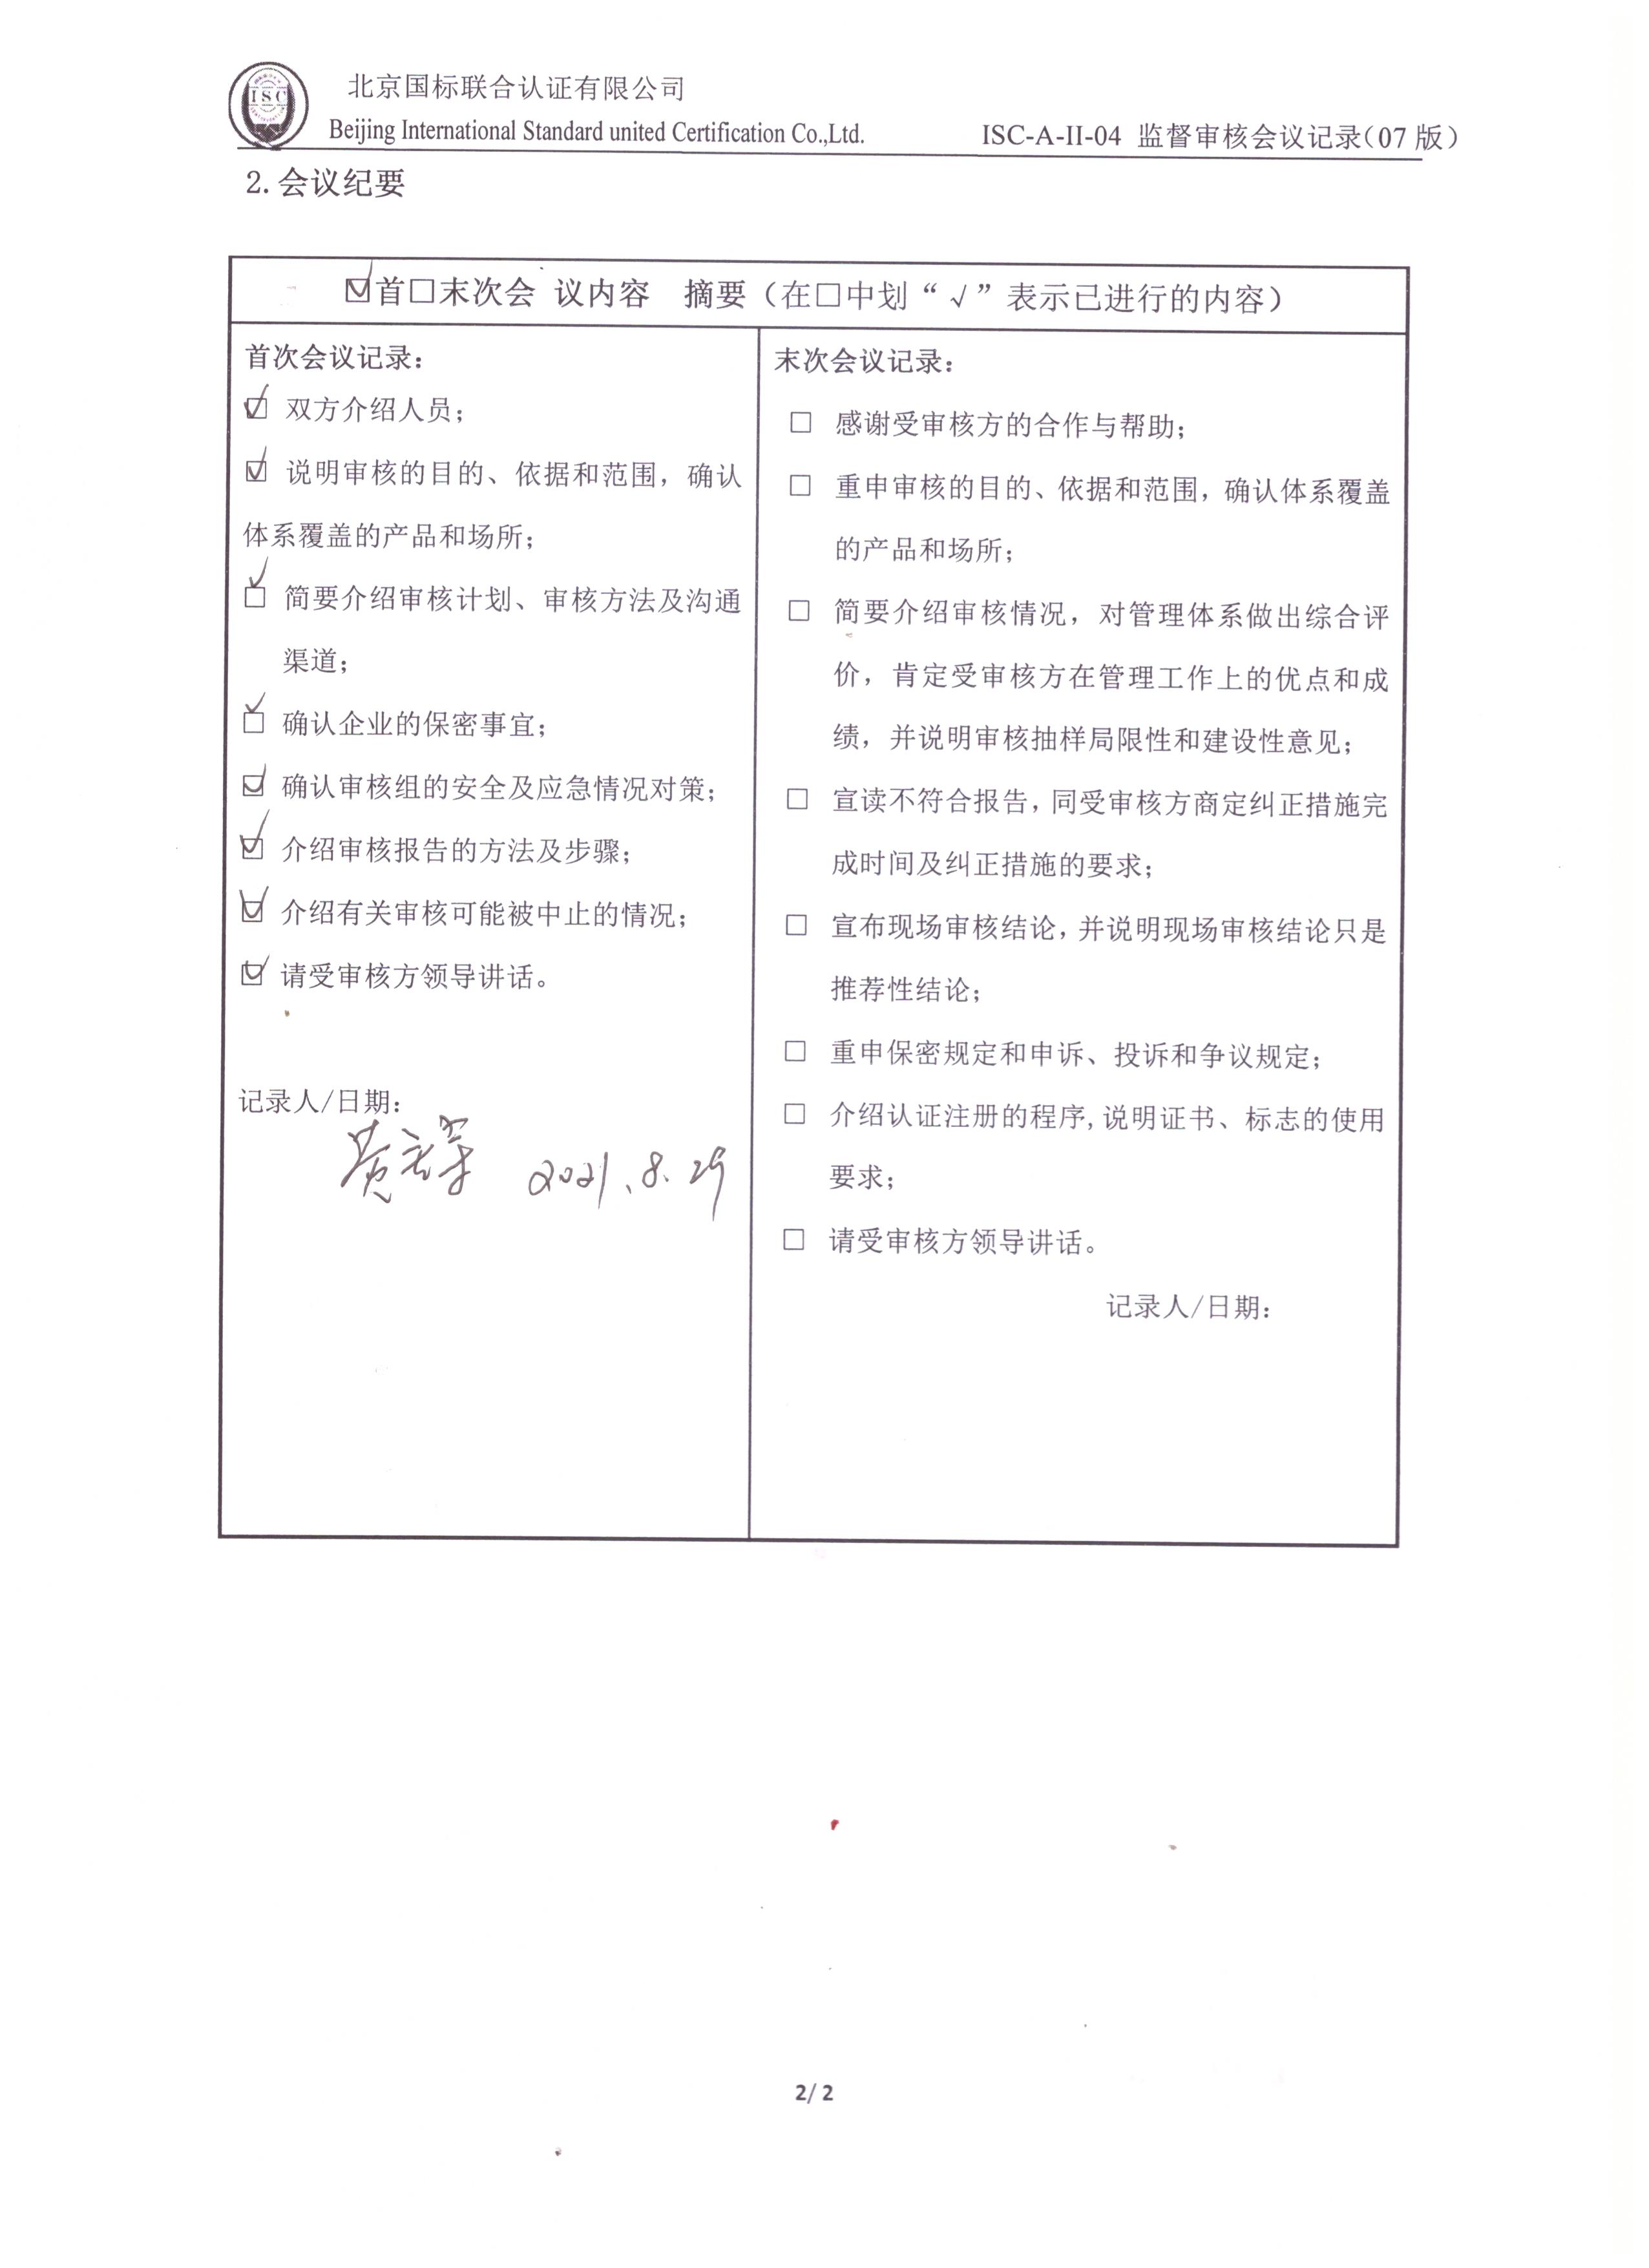 ISC
北京国标联合认证有限公司
Beijing International Standard united Certification Co.,Ltd.
ISC-A-II-04 监督审核会议记录(07 版)
2. 会议纪要
☑首□末次会 议内容 摘要（在□中划“√”表示已进行的内容）
首次会议记录：
☑ 双方介绍人员；
☑ 说明审核的目的、依据和范围，确认
体系覆盖的产品和场所；
☑ 简要介绍审核计划、审核方法及沟通
渠道；
☑ 确认企业的保密事宜；
☑ 确认审核组的安全及应急情况对策；
☑ 介绍审核报告的方法及步骤；
☑ 介绍有关审核可能被中止的情况；
☑ 请受审核方领导讲话。
记录人/日期：
黄 2021.8.29
末次会议记录：
□ 感谢受审核方的合作与帮助；
□ 重申审核的目的、依据和范围，确认体系覆盖
的产品和场所；
□ 简要介绍审核情况，对管理体系做出综合评
价，肯定受审核方在管理工作上的优点和成
绩，并说明审核抽样局限性和建设性意见；
□ 宣读不符合报告，同受审核方商定纠正措施完
成时间及纠正措施的要求；
□ 宣布现场审核结论，并说明现场审核结论只是
推荐性结论；
□ 重申保密规定和申诉、投诉和争议规定；
□ 介绍认证注册的程序,说明证书、标志的使用
要求；
□ 请受审核方领导讲话。
记录人/日期：
2/ 2